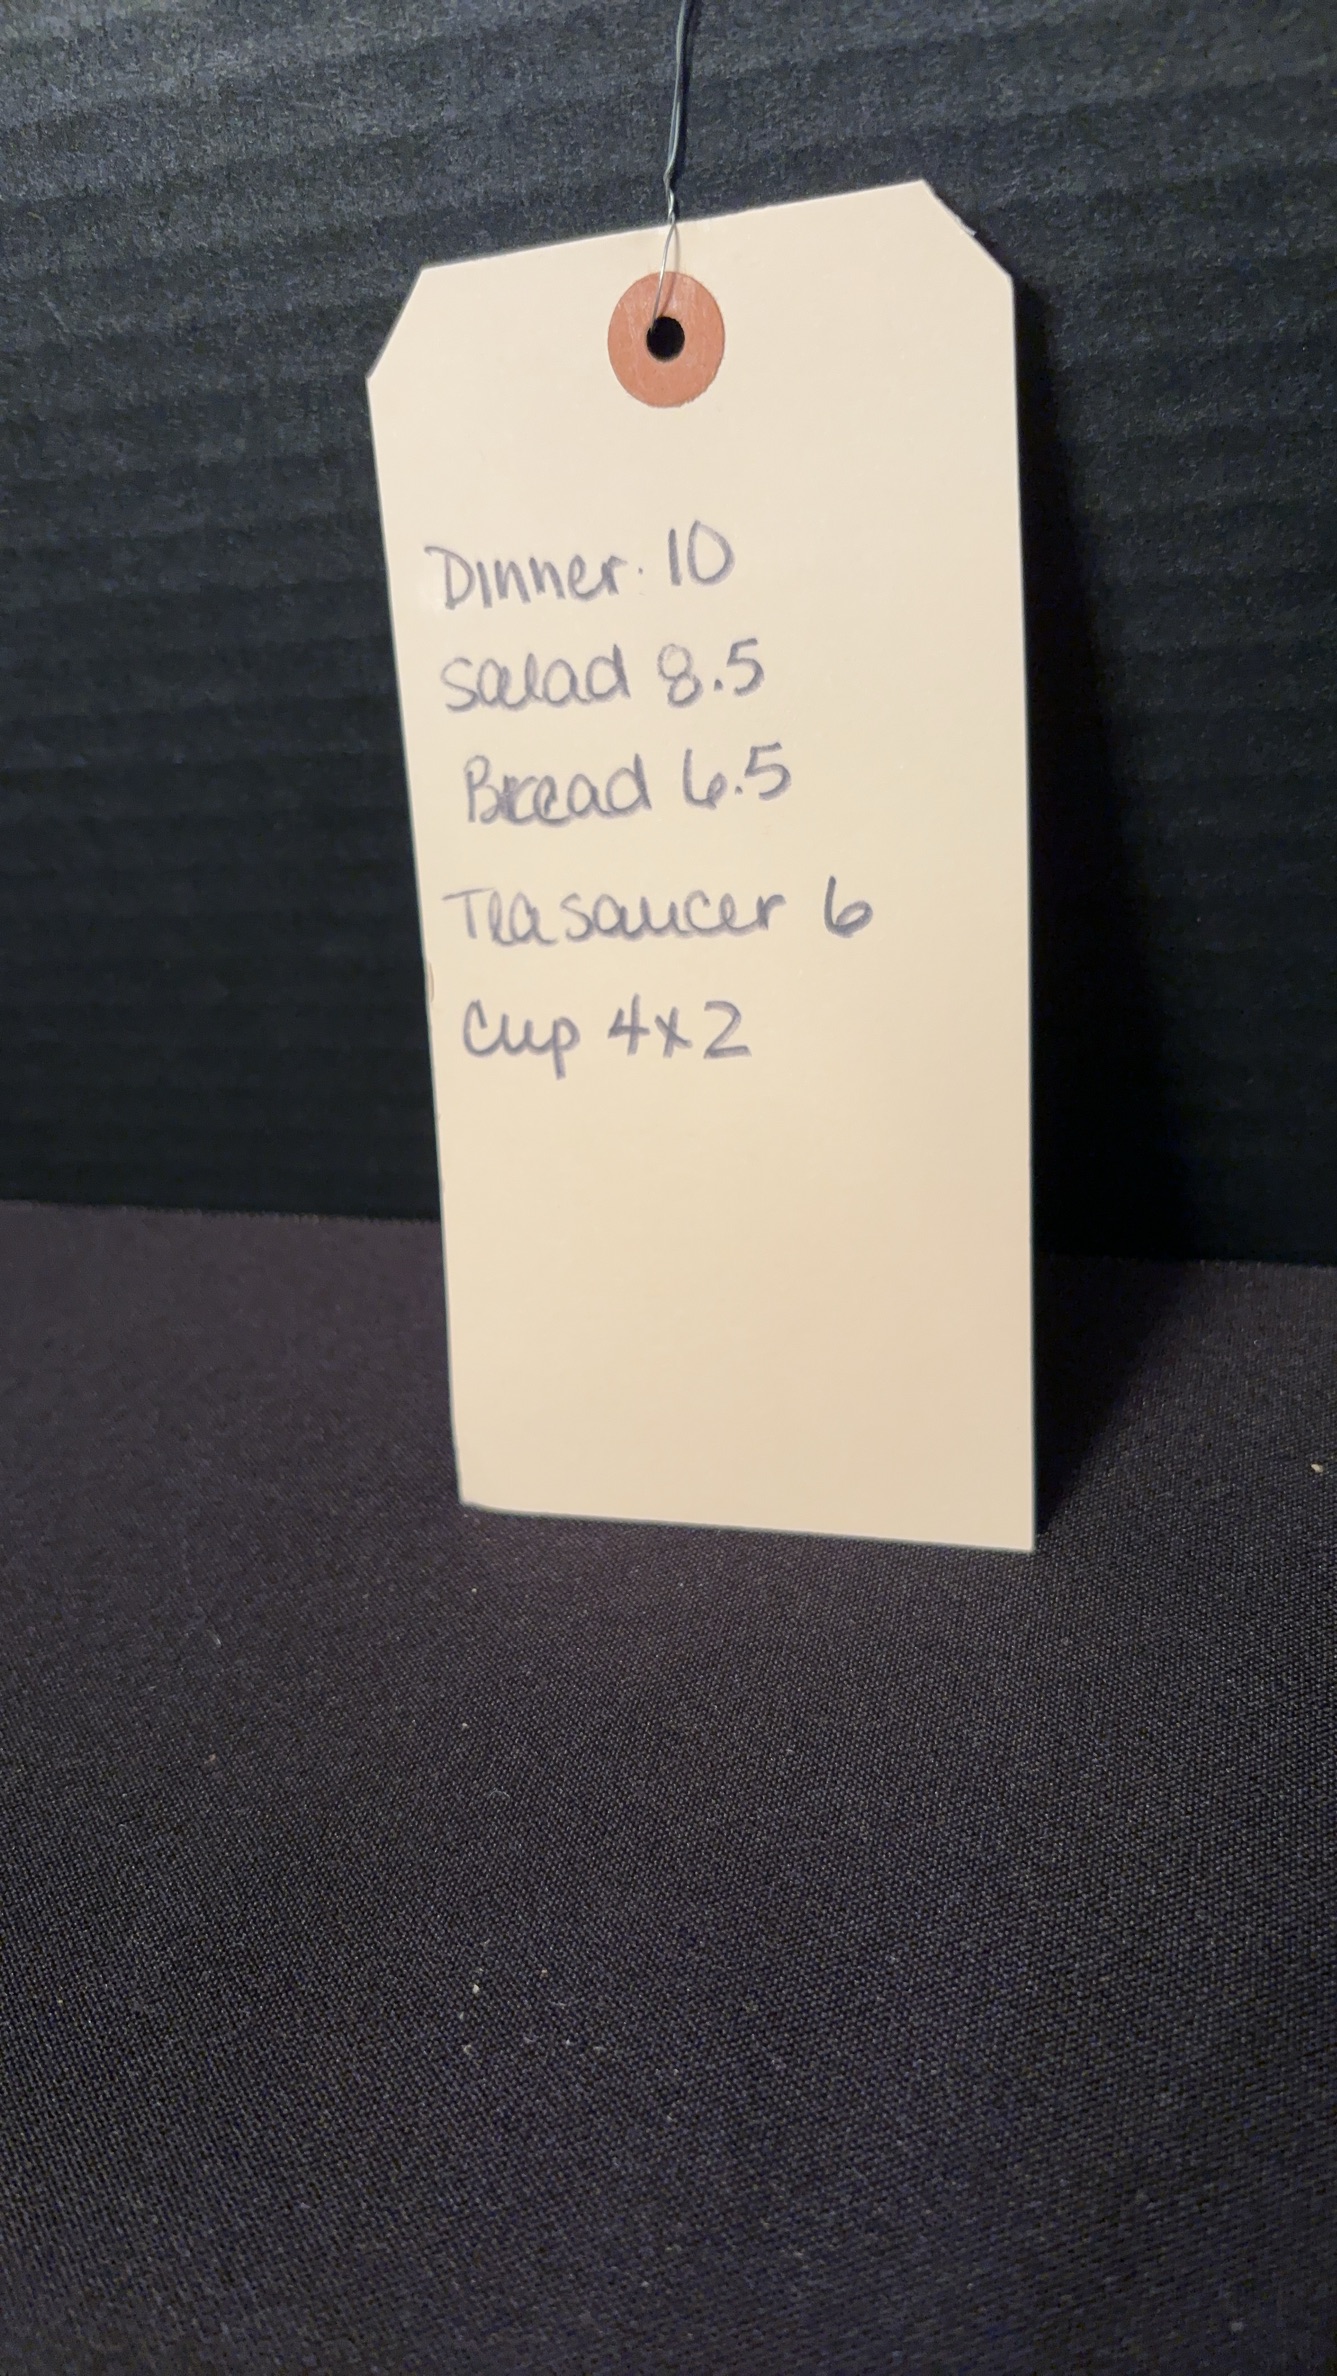 Dinner. 10
Salad 8.5
Bread 6.5
Tea saucer 6
Cup 4x2